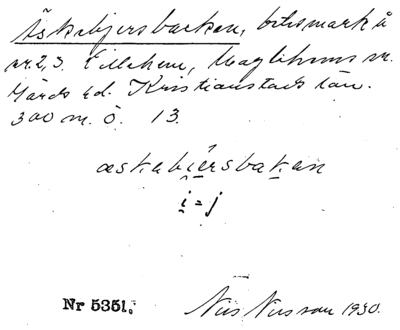 Äskabjersbacken, betesmark å
nr. 2, 3. Lillehem, Maglehems sn.
Gärds hd. Kristianstads län.
300 m. Ö. 13.
æskabiersbakan
i = j
Nr 5351. Nils Nilsson 1930.